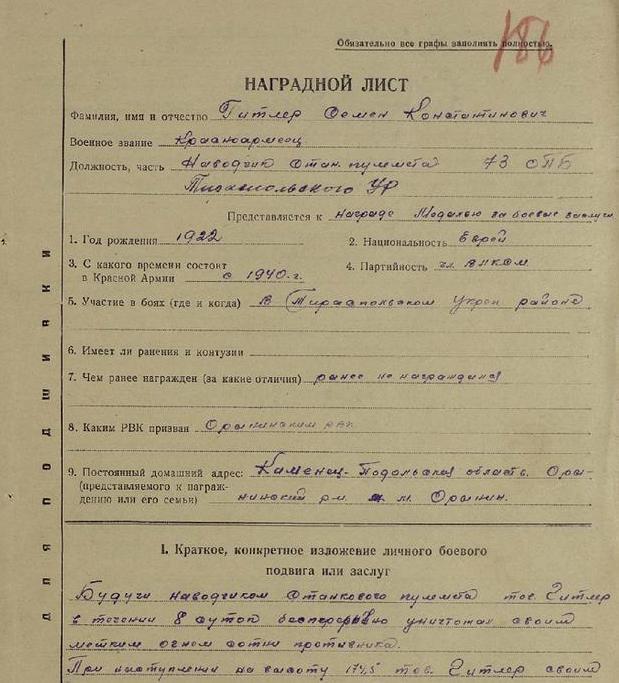 186
Обязательно все графы заполнять полностью.
НАГРАДНОЙ ЛИСТ
Фамилия, имя и отчество Гитлер Семен Константинович
Военное звание Красноармеец
Должность, часть Наводчик Стан. пулемета 73 ОПБ
Тираспольского УР
Представляется к награде Медалью за боевые заслуги
1. Год рождения 1922 2. Национальность Еврей
3. С какого времени состоит
в Красной Армии с 1940 г. 4. Партийность чл. ВЛКСМ
5. Участие в боях (где и когда) В Тираспольском Укреп районе
6. Имеет ли ранения и контузии
7. Чем ранее награжден (за какие отличия) ранее не награждался
8. Каким РВК призван Орынинским рвк
9. Постоянный домашний адрес: Каменец-Подольская область. Оры-
(представляемого к награж-
дению или его семьи) нинский р-н м. Орынин.
I. Краткое, конкретное изложение личного боевого
подвига или заслуг
Будучи наводчиком Станкового пулемета тов. Гитлер
в течении 8 суток беспрерывно уничтожал своим
метким огнем сотни противника.
При наступлении на высоту 174,5 тов. Гитлер своим
для подшивки